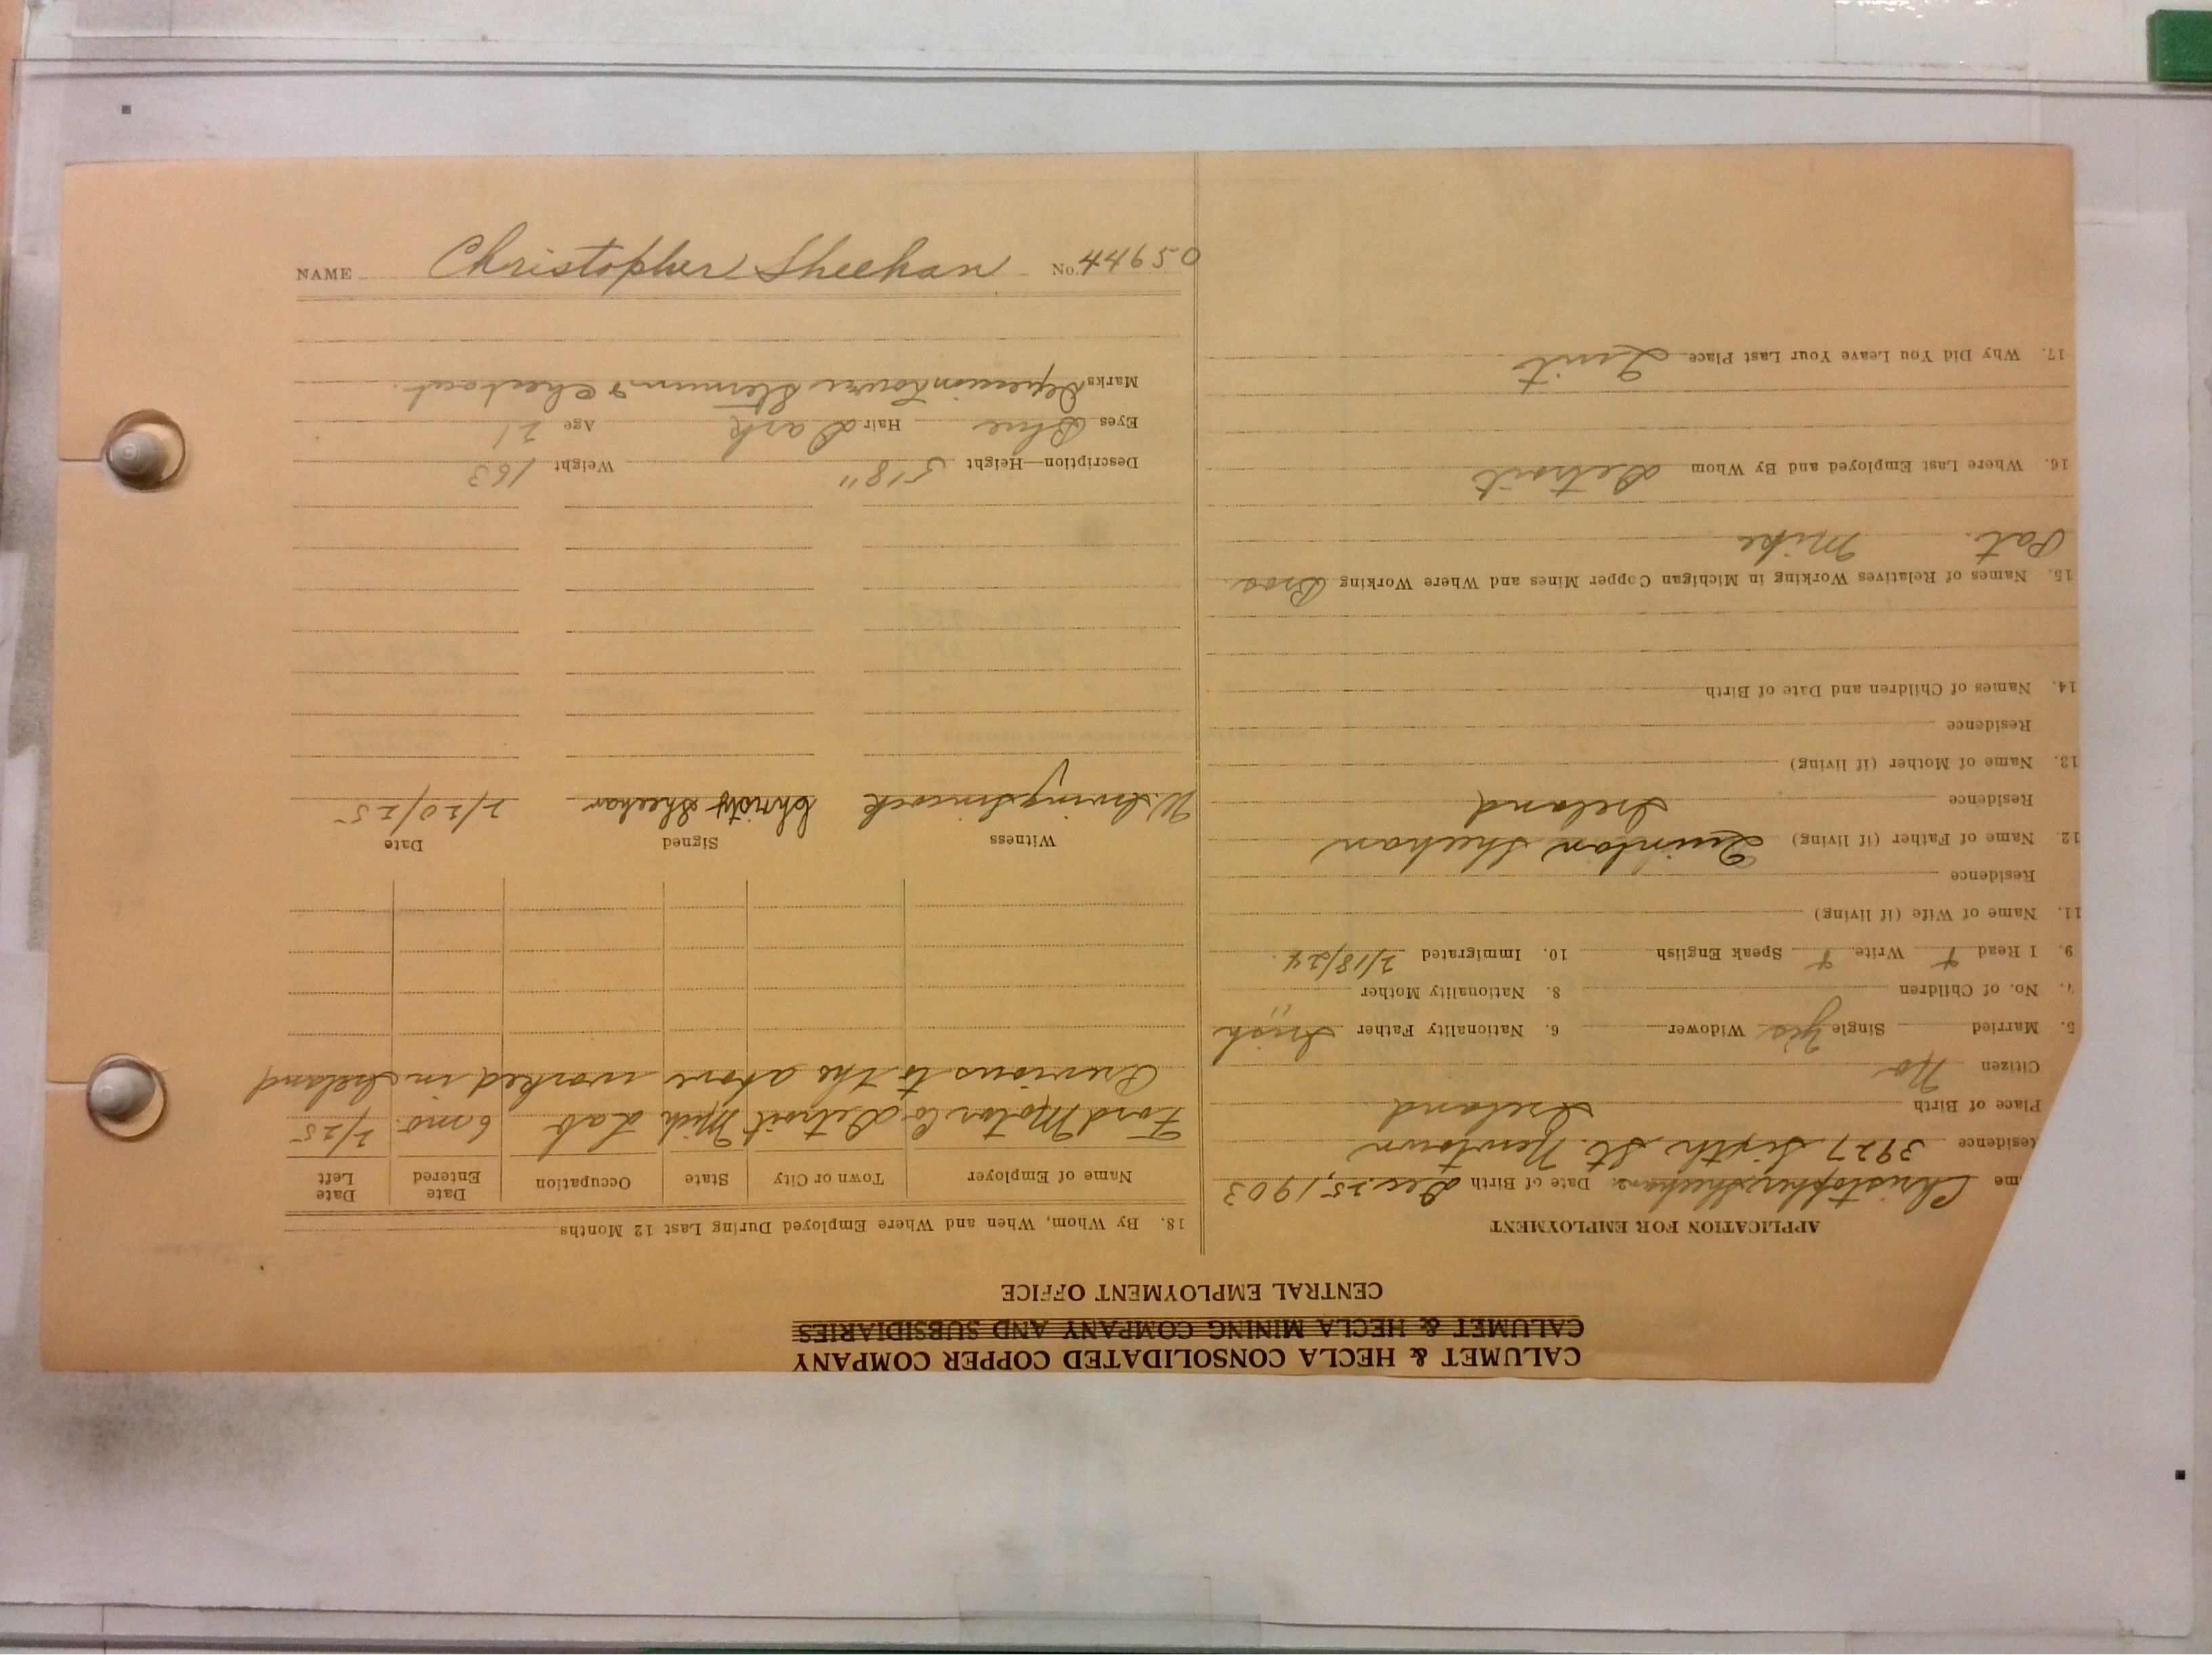 NAME Christopher Sheehan No. 44650
CALUMET & HECLA CONSOLIDATED COPPER COMPANY
CALUMET & HECLA MINING COMPANY AND SUBSIDIARIES
CENTRAL EMPLOYMENT OFFICE
APPLICATION FOR EMPLOYMENT
me Christopher Sheehan Date of Birth Dec 25, 1903
Residence 3927 Sixth St. Newtown
Place of Birth Ireland
Citizen No
5. Married Single Yes Widower 6. Nationality Father Irish
7. No. of Children 8. Nationality Mother "
9. I Read Write Speak English 10. Immigrated 2/18/24
11. Name of Wife (if living)
Residence
12. Name of Father (if living) Quinlan Sheehan
Residence Ireland
13. Name of Mother (if living)
Residence
14. Names of Children and Date of Birth
15. Names of Relatives Working in Michigan Copper Mines and Where Working Bros.
Pat. Mike
16. Where Last Employed and By Whom Detroit
17. Why Did You Leave Your Last Place Quit
18. By Whom, When and Where Employed During Last 12 Months
Name of Employer Town or City State Occupation Date Entered Date Left
Ford Motor Co Detroit Mich Lab 6 mo. 2/25
Previous to the above worked in Ireland
Witness Signed Date
W. Irving Christy Sheehan 2/20/25
Description—Height 5'8" Weight 163
Eyes Blue Hair Dark Age 21
Marks Depression lower & Chest